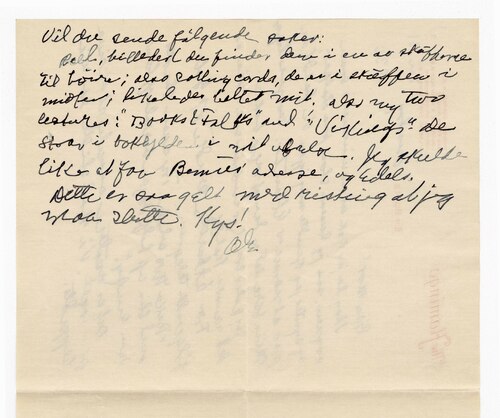 Vil du sende følgende saker:
billedet du finder dem i en av skufferne
til høire; also calling cards, de er i skuffen i
midten; likeledes beltet mit, also my two
lectures: "Books & Talks" and "Vikings". De
staar i bokhylden i mit. Jeg skulde
like at faa Bernies adresse, og Edels.
Dette er saa galt med rissting at jeg
maa slutte. Kys!